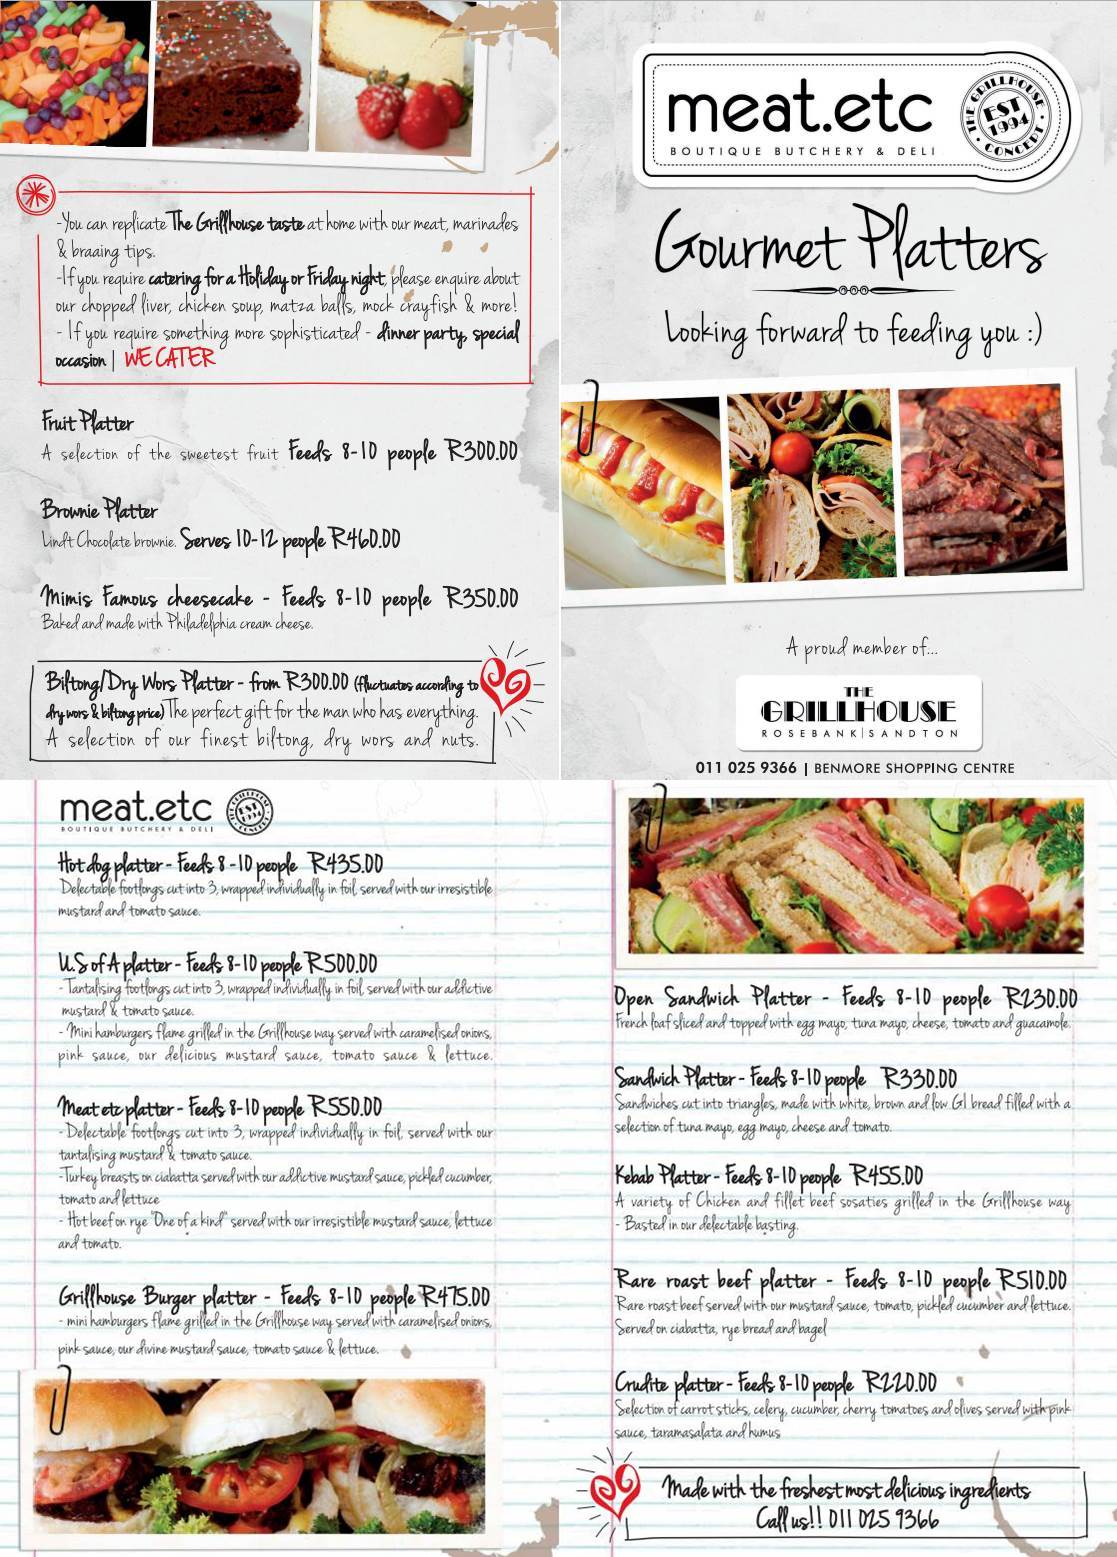 -You can replicate The Grillhouse taste at home with our meat, marinades
& braaing tips.
-If you require catering for a Holiday or Friday night, please enquire about
our chopped liver, chicken soup, matza balls, mock crayfish & more!
- If you require something more sophisticated - dinner party, special
occasion | WE CATER
Fruit Platter
A selection of the sweetest fruit Feeds 8-10 people R300.00
Brownie Platter
Lindt Chocolate brownie. Serves 10-12 people R460.00
Mimis Famous cheesecake - Feeds 8-10 people R350.00
Baked and made with Philadelphia cream cheese.
Biltong/Dry Wors Platter - from R300.00 (fluctuates according to
dry wors & biltong price) The perfect gift for the man who has everything.
A selection of our finest biltong, dry wors and nuts.
meat.etc
BOUTIQUE BUTCHERY & DELI
THE GRILLHOUSE
EST
1994
CONCEPT
Gourmet Platters
Looking forward to feeding you :)
A proud member of...
THE
GRILLHOUSE
ROSEBANK|SANDTON
011 025 9366 | BENMORE SHOPPING CENTRE
meat.etc
BOUTIQUE BUTCHERY & DELI
THE GRILLHOUSE
EST
1994
CONCEPT
Hot dog platter - Feeds 8 -10 people R435.00
Delectable footlongs cut into 3, wrapped individually in foil, served with our irresistible
mustard and tomato sauce.
U.S of A platter - Feeds 8-10 people R500.00
- Tantalising footlongs cut into 3, wrapped individually in foil, served with our addictive
mustard & tomato sauce.
- Mini hamburgers flame grilled in the Grillhouse way served with caramelised onions,
pink sauce, our delicious mustard sauce, tomato sauce & lettuce.
Meat etc platter - Feeds 8-10 people R550.00
- Delectable footlongs cut into 3, wrapped individually in foil, served with our
tantalising mustard & tomato sauce.
-Turkey breasts on ciabatta served with our addictive mustard sauce, pickled cucumber,
tomato and lettuce
- Hot beef on rye "One of a kind" served with our irresistible mustard sauce, lettuce
and tomato.
Grillhouse Burger platter - Feeds 8-10 people R475.00
- mini hamburgers flame grilled in the Grillhouse way served with caramelised onions,
pink sauce, our divine mustard sauce, tomato sauce & lettuce.
Open Sandwich Platter - Feeds 8-10 people R230.00
French loaf sliced and topped with egg mayo, tuna mayo, cheese, tomato and guacamole.
Sandwich Platter - Feeds 8-10 people R330.00
Sandwiches cut into triangles, made with white, brown and low GI bread filled with a
selection of tuna mayo, egg mayo, cheese and tomato.
Kebab Platter - Feeds 8-10 people R455.00
A variety of Chicken and fillet beef sosaties grilled in the Grillhouse way
- Basted in our delectable basting.
Rare roast beef platter - Feeds 8-10 people R510.00
Rare roast beef served with our mustard sauce, tomato, pickled cucumber and lettuce.
Served on ciabatta, rye bread and bagel
Crudite platter - Feeds 8-10 people R220.00
Selection of carrot sticks, celery, cucumber, cherry tomatoes and olives served with pink
sauce, taramasalata and humus
Made with the freshest most delicious ingredients
Call us!! 011 025 9366